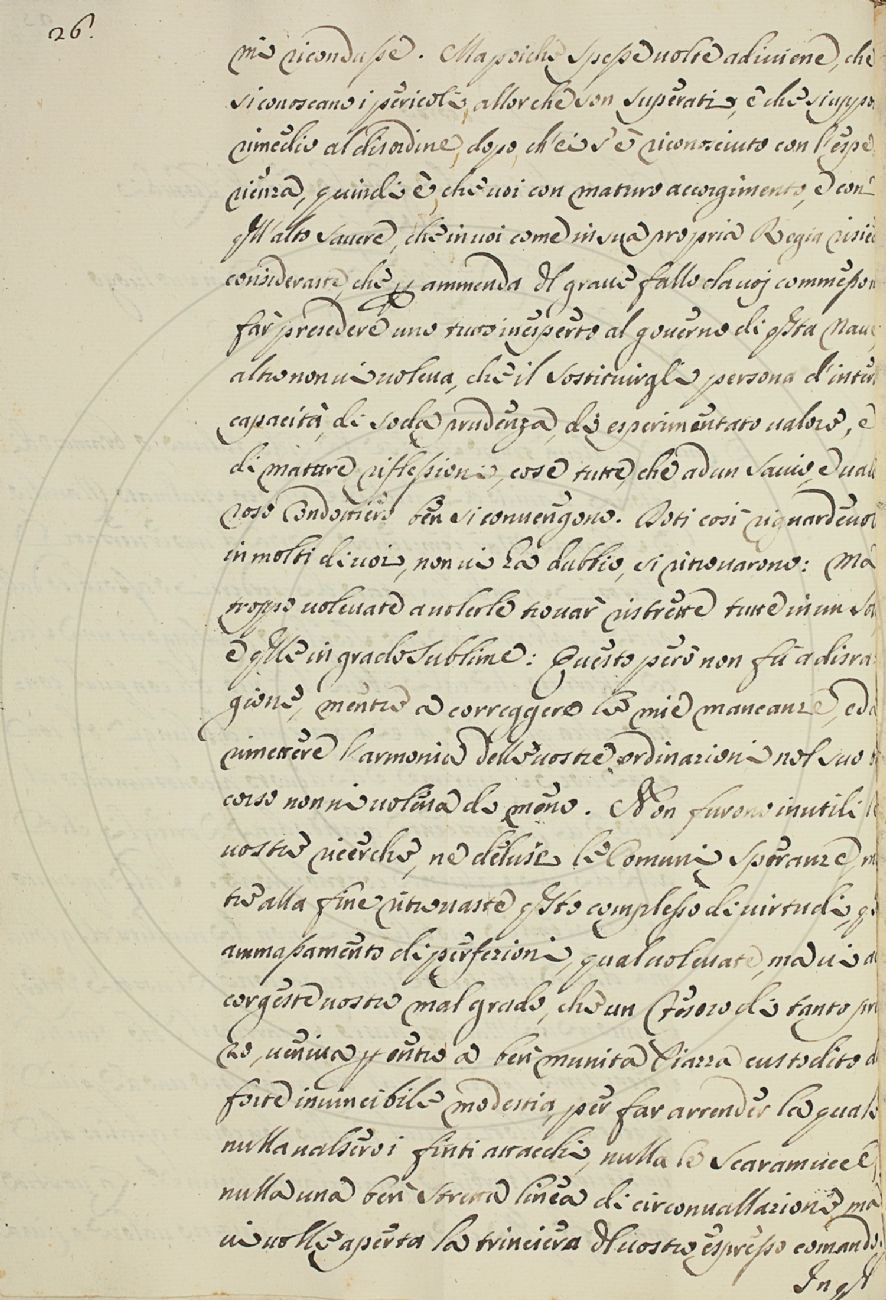 26.
me ricondusse. Ma poiche spesse volte adiviene, che
si conoscano i pericoli, allor che son superati, e che si appo
rimedio al disordine, dopo, ch'ei s'è riconosciuto con l'espe
rienza, quindi è, che voi con maturo accorgimento, e con
qll'alto savere, che in voi come in sua propria Regia risie
consideraste, che p ammenda dl grave fallo da voj commesso
far presedere uno tutto inesperto al governo di qsta Nave,
altro non vi voleva, che il sostituirgli persona d'inter
capacità, di soda prudenza, di esperimentato valore, e
di mature riflessioni, cose tutte che ad un savio, e valo
roso Condottiero ben si convengono. Doti così riguardevol
in molti di voi, non vi ha dubbio, si ritrovarono: Ma
troppo volevate a volerle trovar ristrette tutte in un so
e qlle in grado sublime: Questo però non fù a disra
gione, mentre a correggere le mie mancanze, ed a
rimettere l'armonia delle vostre ordinazioni nel suo
corso non ni voleva di meno. Non furono inutili le
vostre ricerche, ne deluse le Comuni speranze,
tre alla fine ritrovaste qsto complesso di virtudi,
ammassamento di perfezioni, qual volevate, ma vi a
corgeste vostro mal grado, che un Tesoro di tanto pre
zo, veniva p entro a ben munita Piazza custodito d
forte invincibile modestia, per far arrender la quale
nulla valsero i finti attacchi, nulla le Scaramucce,
nulla una ben stretta linea di circonvallazione, ma
vi volle aperta la trinciera dl vostro espresso comando,
In qst